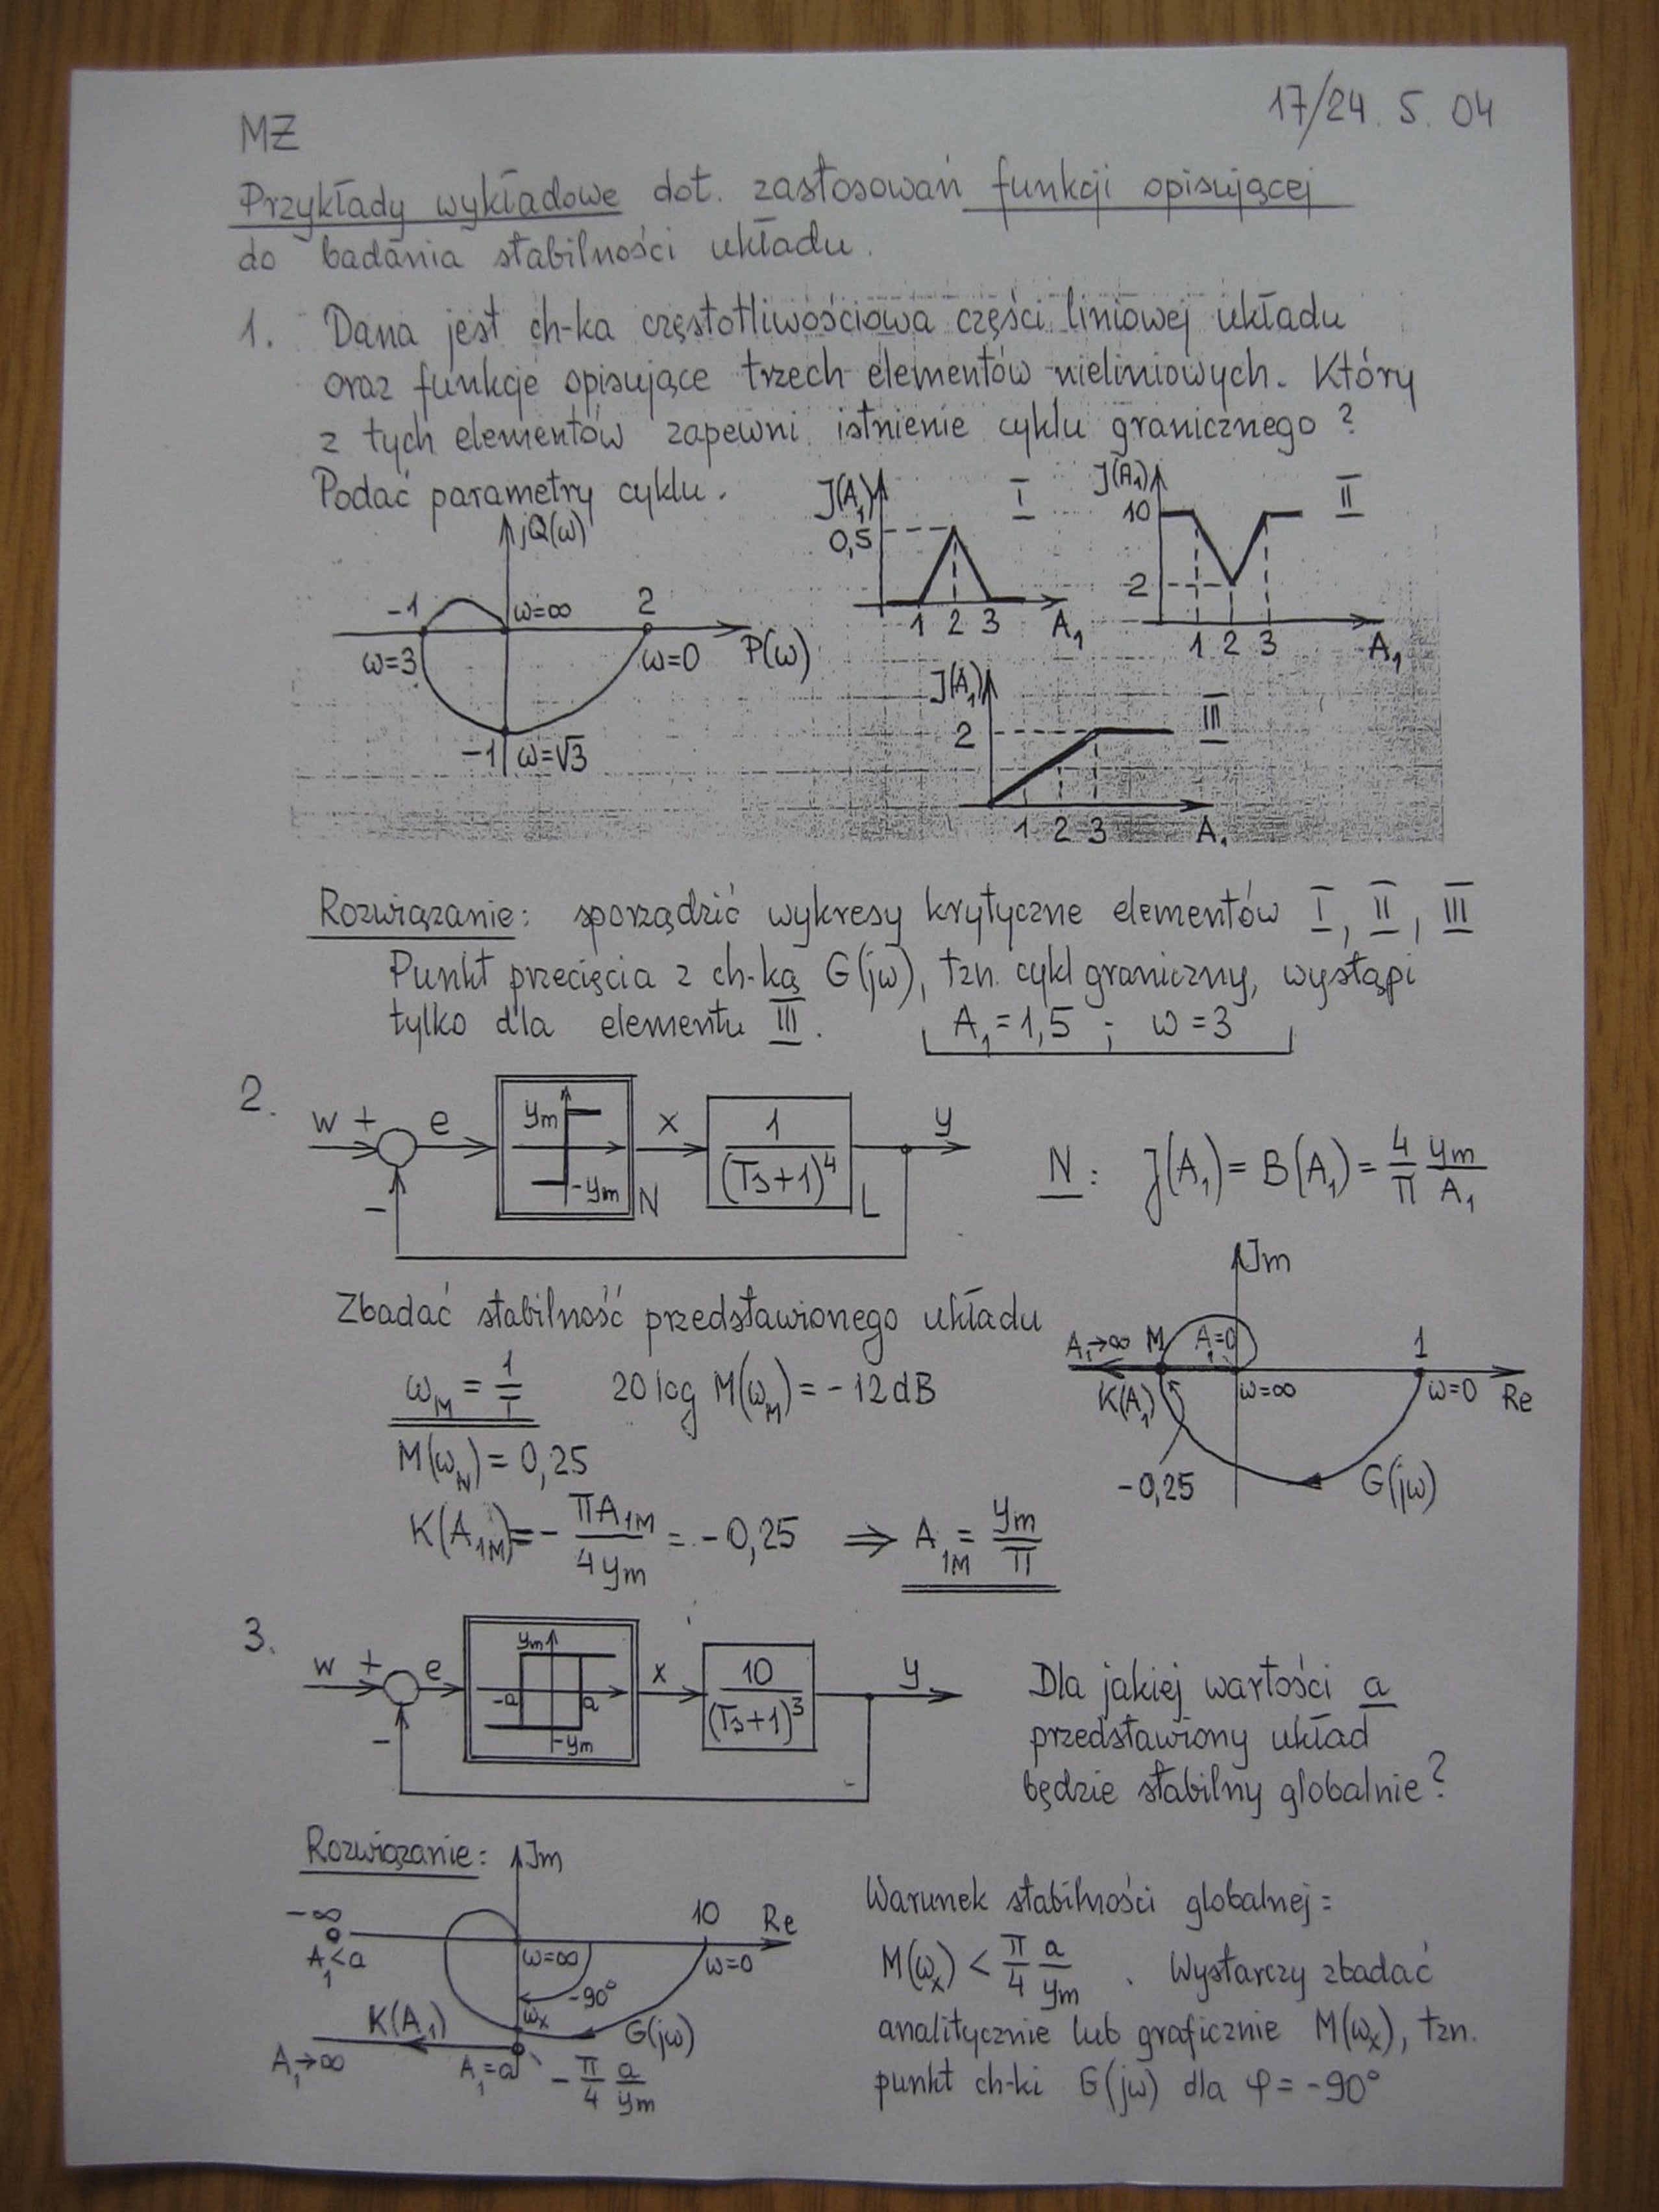 17/24. 5. 04
MZ
Przykłady wykładowe dot. zastosowań funkcji opisującej
do badania stabilności układu.
1. Dana jest ch-ka częstotliwościowa części liniowej układu
oraz funkcje opisujące trzech elementów nieliniowych. Który
z tych elementów zapewni istnienie cyklu granicznego?
Podać parametry cyklu.
jQ(ω)
-1 ω=∞ 2
ω=3 ω=0 P(ω)
-1 ω=√3
J(A₁) I
0,5
1 2 3 A₁
J(A₁) II
10
2
1 2 3 A₁
J(A₁) III
2
1 2 3 A₁
Rozwiązanie: sporządzić wykresy krytyczne elementów I, II, III
Punkt przecięcia z ch-ką G(jω), tzn. cykl graniczny, wystąpi
tylko dla elementu III. A₁ = 1,5 ; ω = 3
2. w + e ym -ym N x 1/(Ts+1)⁴ L y
-
N: J(A₁) = B(A₁) = 4/π ym/A₁
Zbadać stabilność przedstawionego układu
ω_M = 1/T 20 log M(ω_M) = -12 dB
M(ω_N) = 0,25
K(A₁M) = - πA₁M/4ym = -0,25 ⇒ A₁M = ym/π
Jm
A₁→∞ M A₁=0 1
K(A₁) ω=∞ ω=0 Re
-0,25 G(jω)
3. w + e ym -a a -ym x 10/(Ts+1)³ y
-
Dla jakiej wartości a
przedstawiony układ
będzie stabilny globalnie?
Rozwiązanie: Jm
-∞ 10 Re
A₁<a ω=∞ ω=0
-90°
K(A₁) ωx G(jω)
A₁→∞ A₁=a - π/4 a/ym
Warunek stabilności globalnej:
M(ωx) < π/4 a/ym . Wystarczy zbadać
analitycznie lub graficznie M(ωx), tzn.
punkt ch-ki G(jω) dla φ = -90°